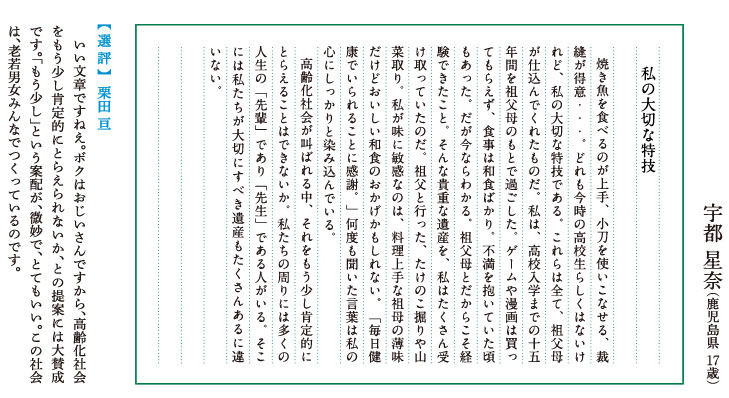 宇都 星奈（鹿児島県 17歳）
私の大切な特技
焼き魚を食べるのが上手、小刀を使いこなせる、裁
縫が得意・・・。どれも今時の高校生らしくはないけ
れど、私の大切な特技である。これらは全て、祖父母
が仕込んでくれたものだ。私は、高校入学までの十五
年間を祖父母のもとで過ごした。ゲームや漫画は買っ
てもらえず、食事は和食ばかり。不満を抱いていた頃
もあった。だが今ならわかる。祖父母とだからこそ経
験できたこと。そんな貴重な遺産を、私はたくさん受
け取っていたのだ。祖父と行った、たけのこ掘りや山
菜取り。私が味に敏感なのは、料理上手な祖母の薄味
だけどおいしい和食のおかげかもしれない。「毎日健
康でいられることに感謝。」何度も聞いた言葉は私の
心にしっかりと染み込んでいる。
高齢化社会が叫ばれる中、それをもう少し肯定的に
とらえることはできないか。私たちの周りには多くの
人生の「先輩」であり「先生」である人がいる。そこ
には私たちが大切にすべき遺産もたくさんあるに違
いない。
【選評】 栗田 亘
いい文章ですねえ。ボクはおじいさんですから、高齢化社会
をもう少し肯定的にとらえられないか、との提案には大賛成
です。「もう少し」という案配が、微妙で、とてもいい。この社会
は、老若男女みんなでつくっているのです。